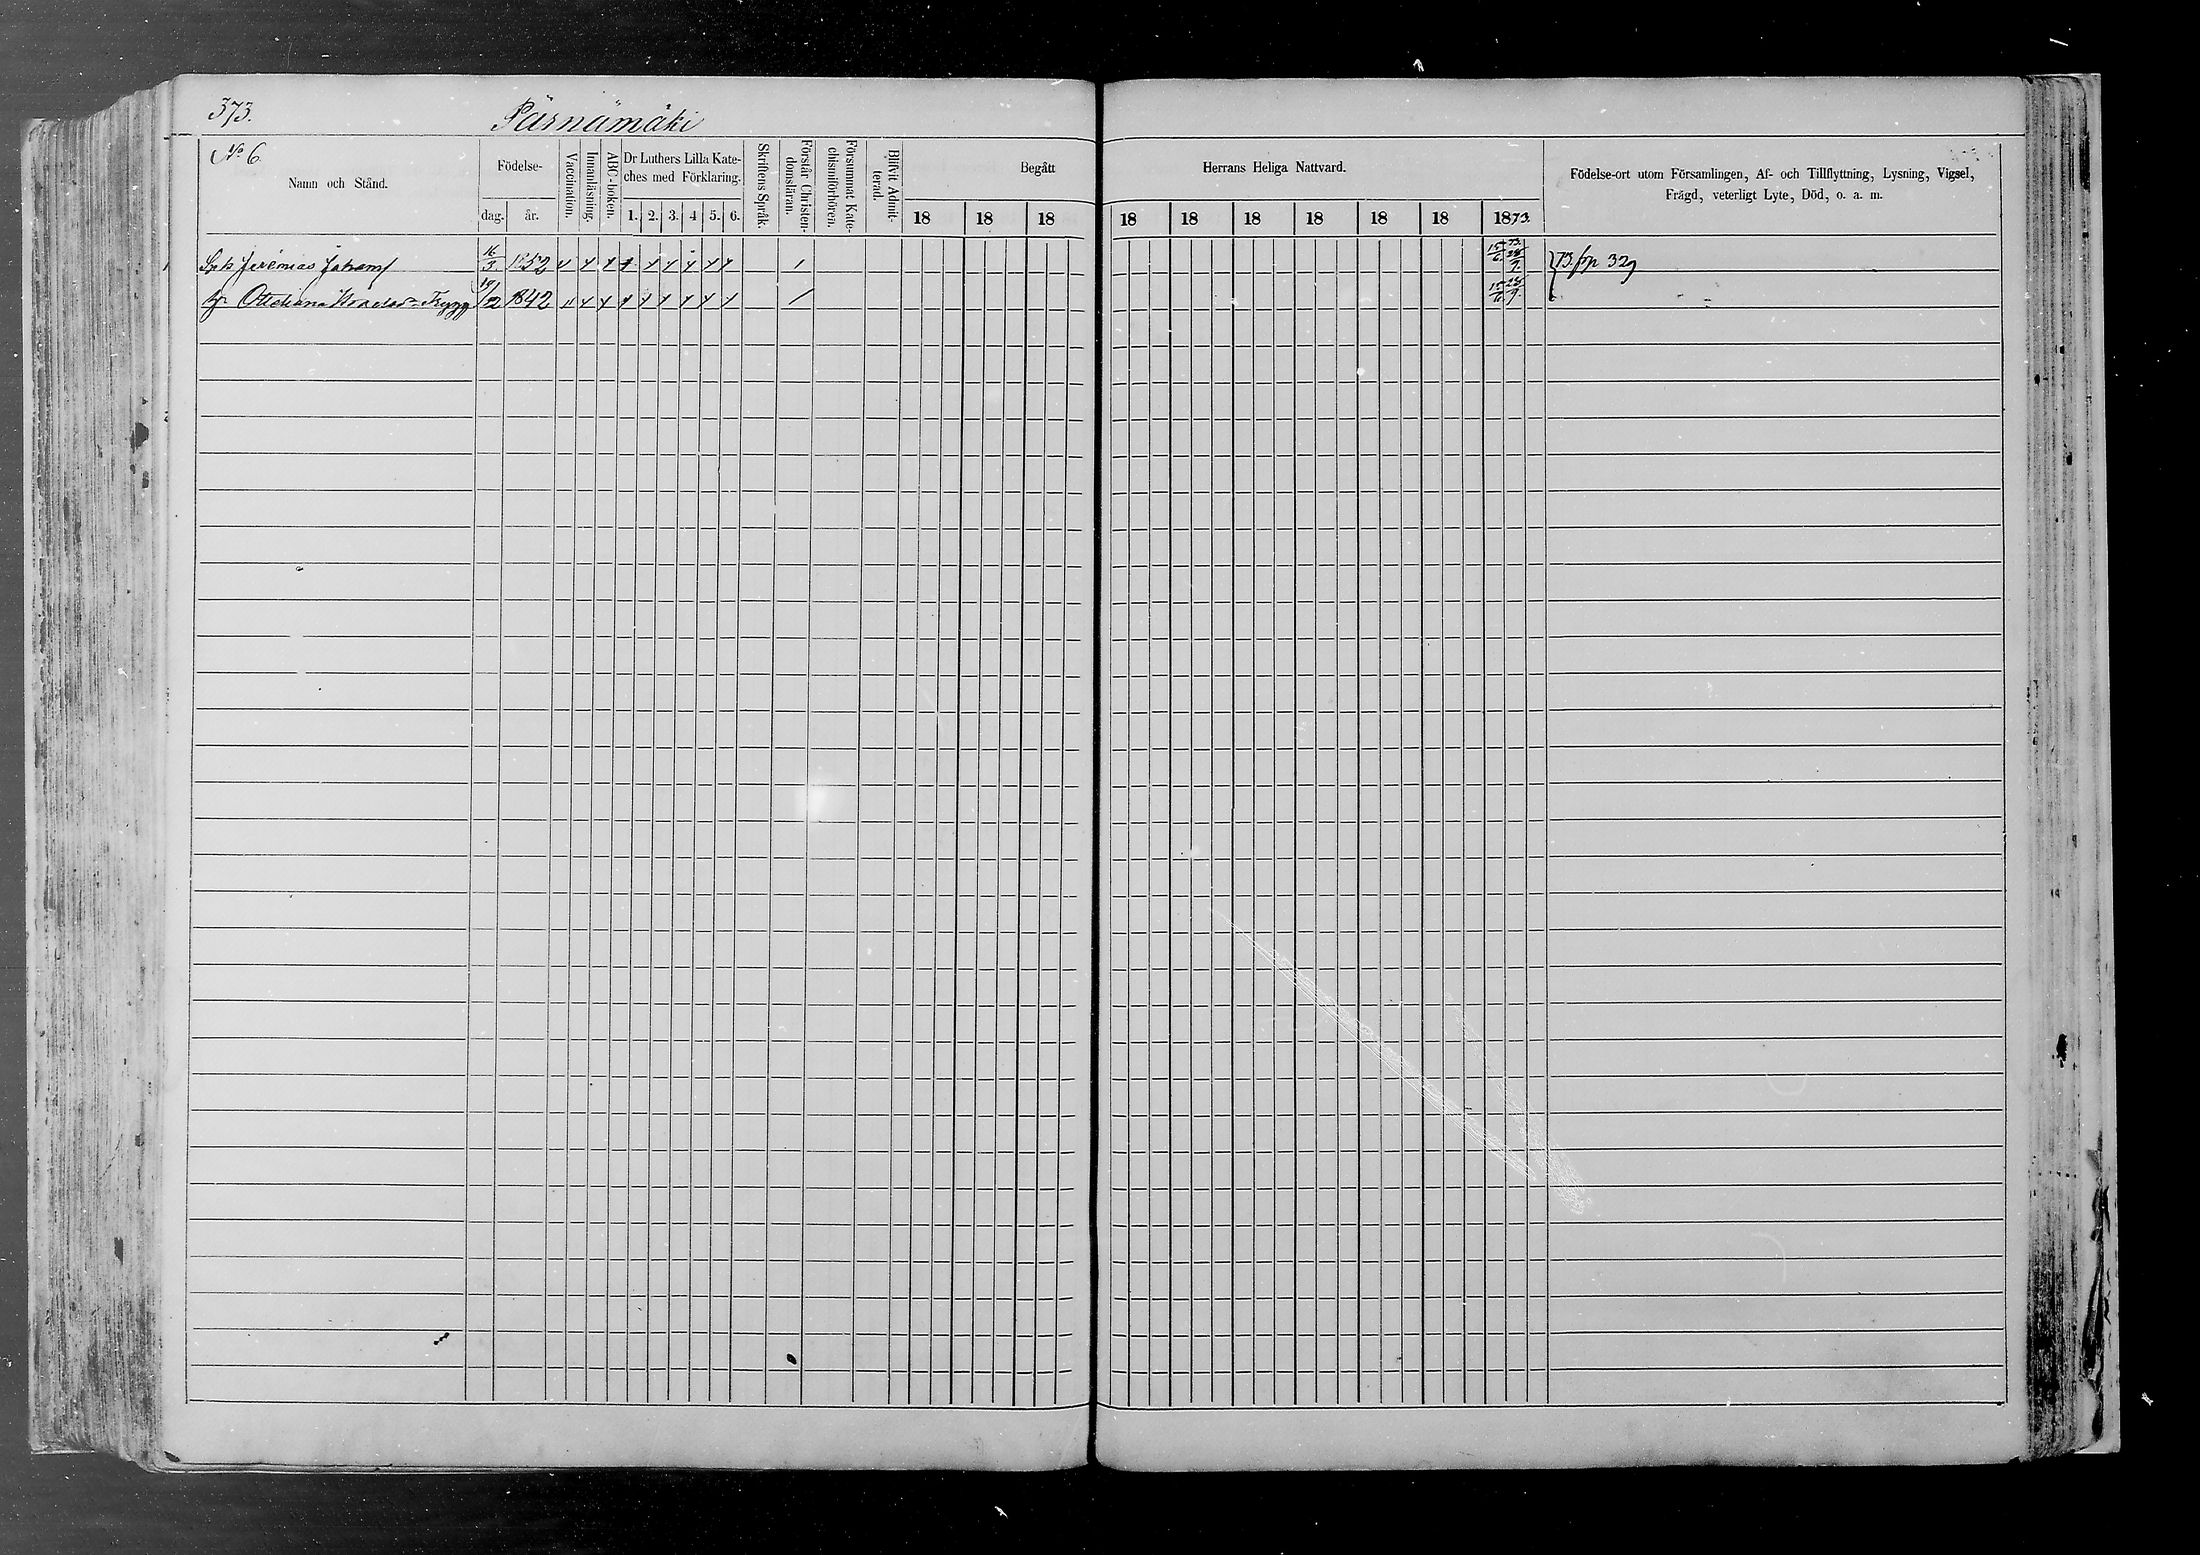 373. Pärnämäki
No 6.
Namn och Stånd.
Födelse-
dag. år.
Vaccination.
Innanläsning.
ABC-boken.
Dr Luthers Lilla Kate-
ches med Förklaring.
1. 2. 3. 4 5. 6.
Skriftens Språk.
Förstår Christen-
domsläran.
Försummat Kate-
chismiförhören.
Blifvit Admit-
terad.
Begått Herrans Heliga Nattvard.
18 18 18 18 18 18 18 18 18 1873.
Födelse-ort utom Församlingen, Af- och Tillflyttning, Lysning, Vigsel,
Frägd, veterligt Lyte, Död, o. a. m.
Jeremias 16/3 1852 15/6 73. 28/9. 73. pp 329
Ottiliana 19/12 1842 15/6 28/9.